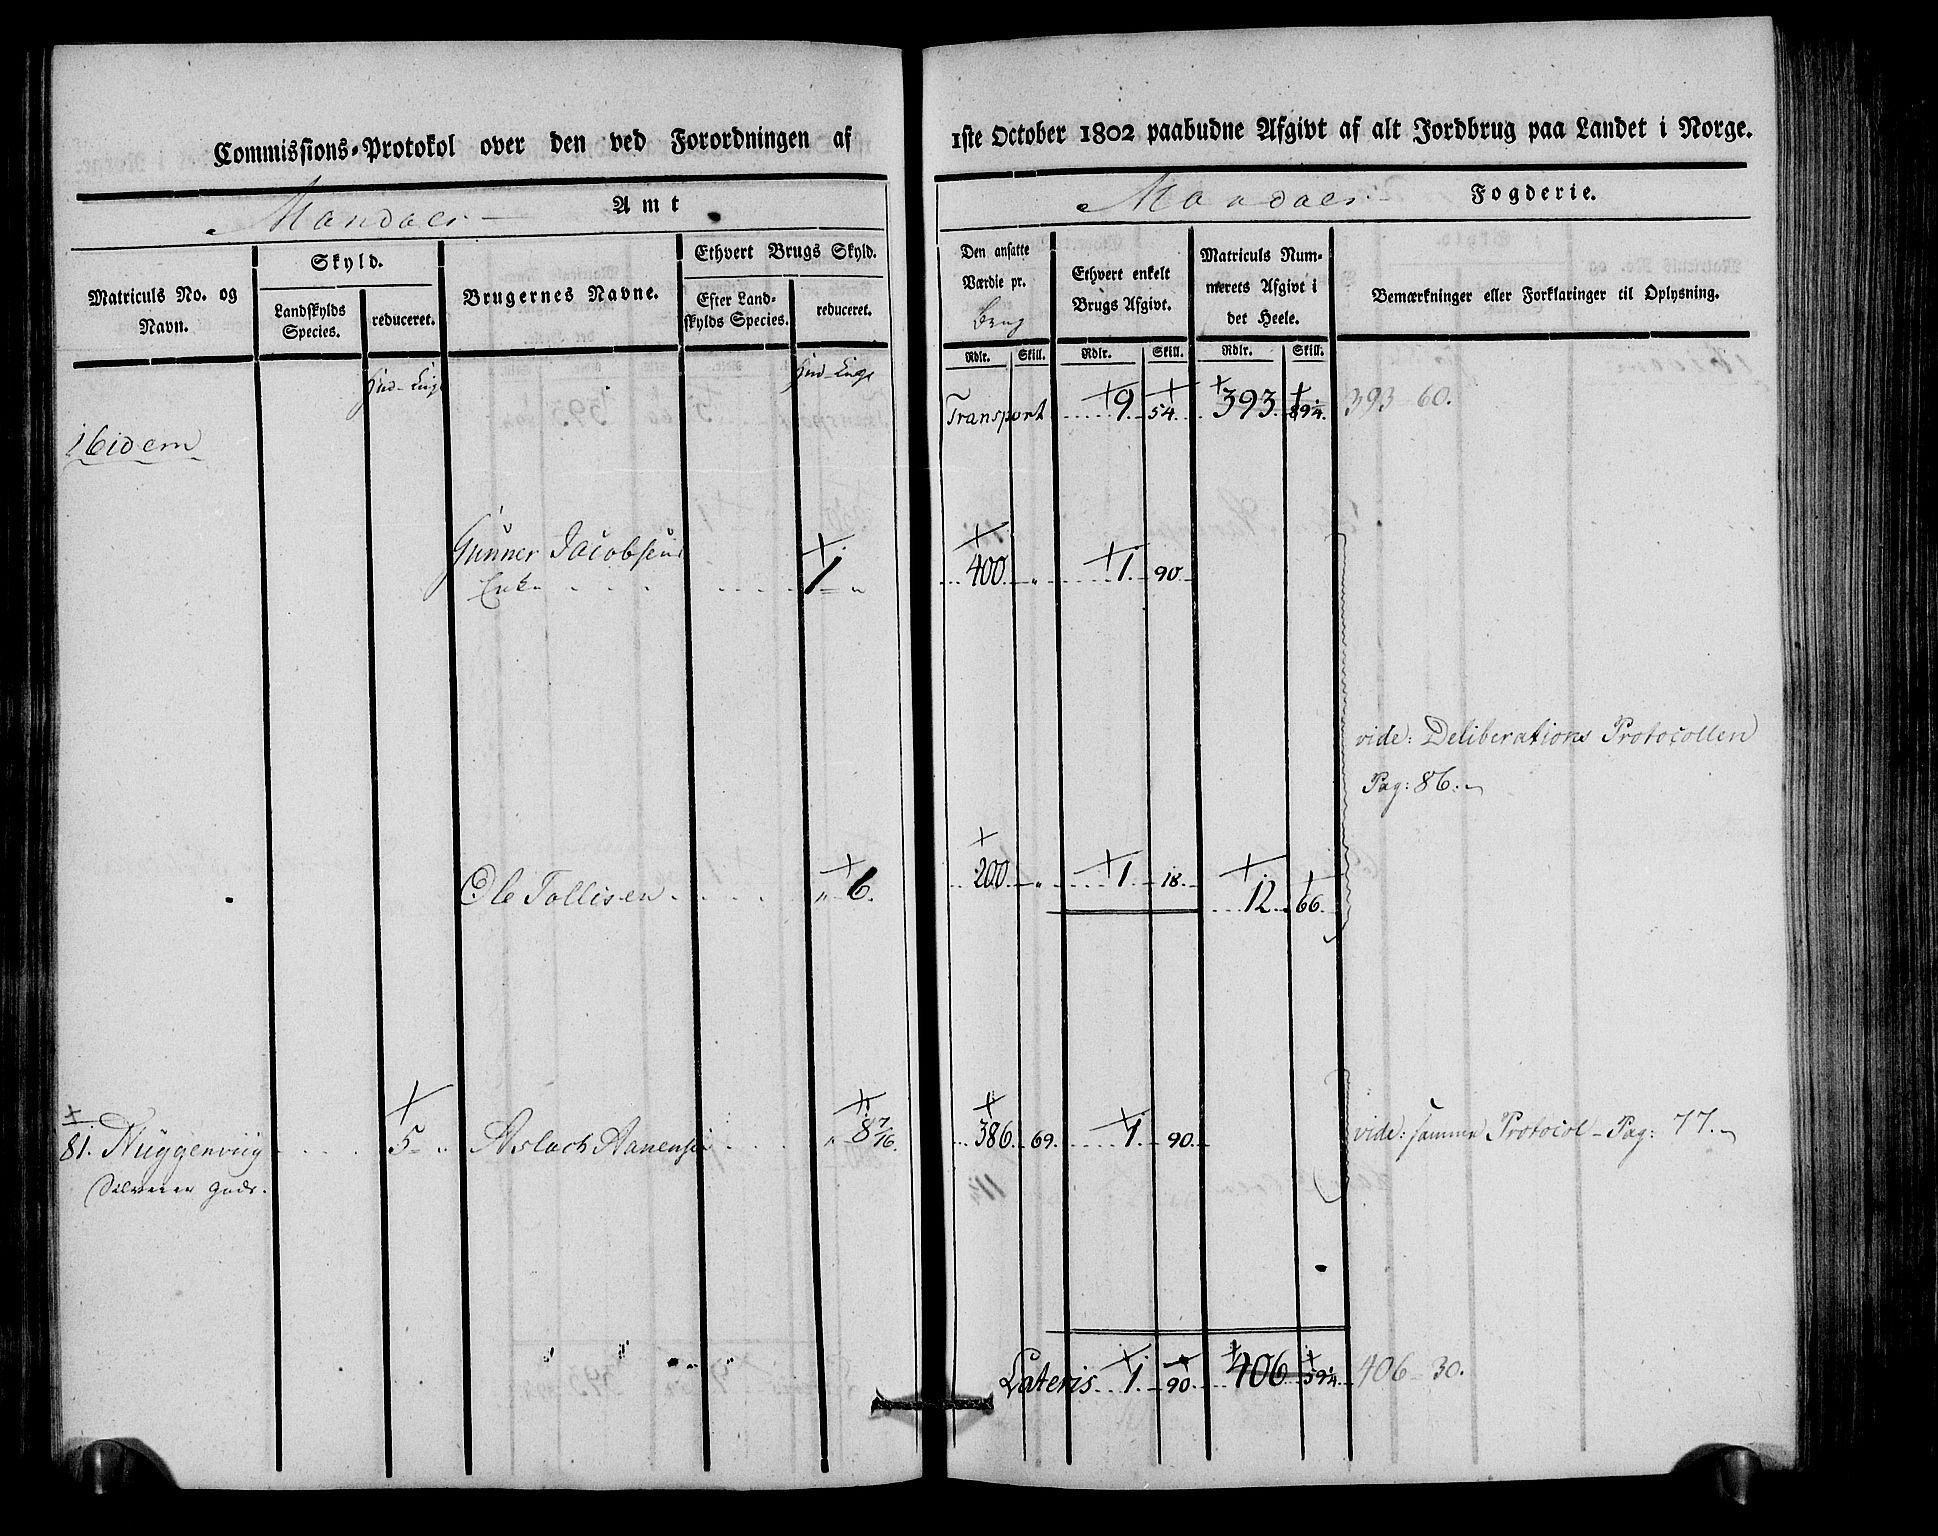 Commissions-Protokol over den ved Forordningen af
Mandals Amt
Matriculs No. og Navn.
Skyld.
Landskylds Species.
reduceret.
Brugernes Navne.
Ethvert Brugs Skyld.
Efter Landskylds Species.
reduceret.
Hud
Hud
Ibidem
Gunner Jacobsens
Enke 1 "
Ole Tollisen " 6.
81. Nuggenviig 5 " Aslach Aanensen " 8 7/16.
gods.
1ste October 1802 paabudne Afgivt af alt Jordbrug paa Landet i Norge.
Mandals Fogderie.
Den ansatte Værdie pr.
Brug
Ethvert enkelt Brugs Afgivt.
Matriculs Nummerets Afgivt i det Heele.
Bemærkninger eller Forklaringer til Oplysning.
Rdlr. Skill. Rdlr. Skill. Rdlr. Skill.
Transport 9. 54. 393. 393 60.
400 " 1. 90.
vide: Deliberations Protocollen
Pag: 86.
200 " 1. 18. 12. 66.
386. 69. 1. 90. vide: samme Protocol - Pag: 77.
Lateris 1. 90. 406 406 30.